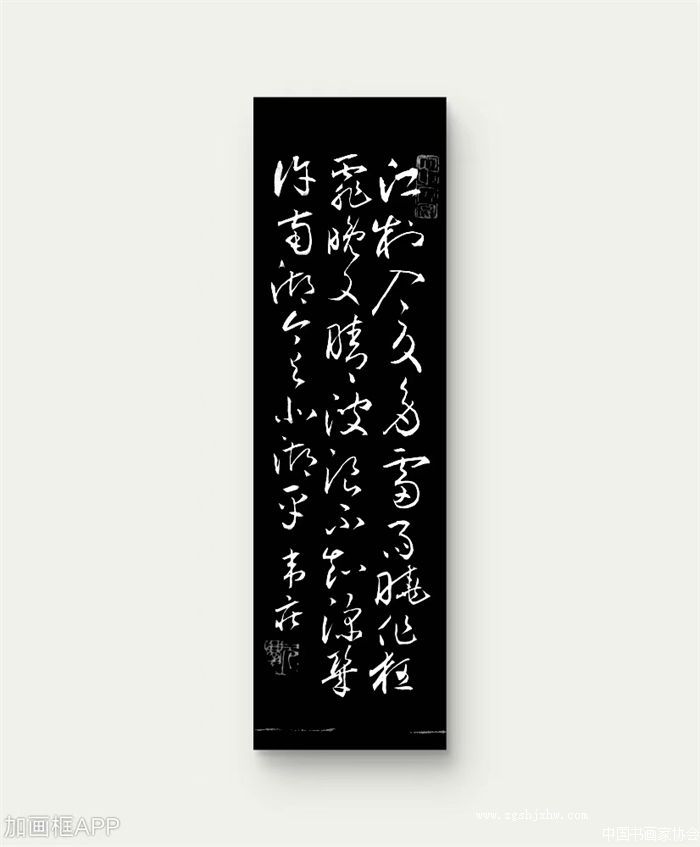 江村入夏多雷雨曉作狂
霖晚又晴波浪不知深幾
許南湖今与北湖平 韦庄
加画框APP
www.zgshjxhw.com
中国书画家协会